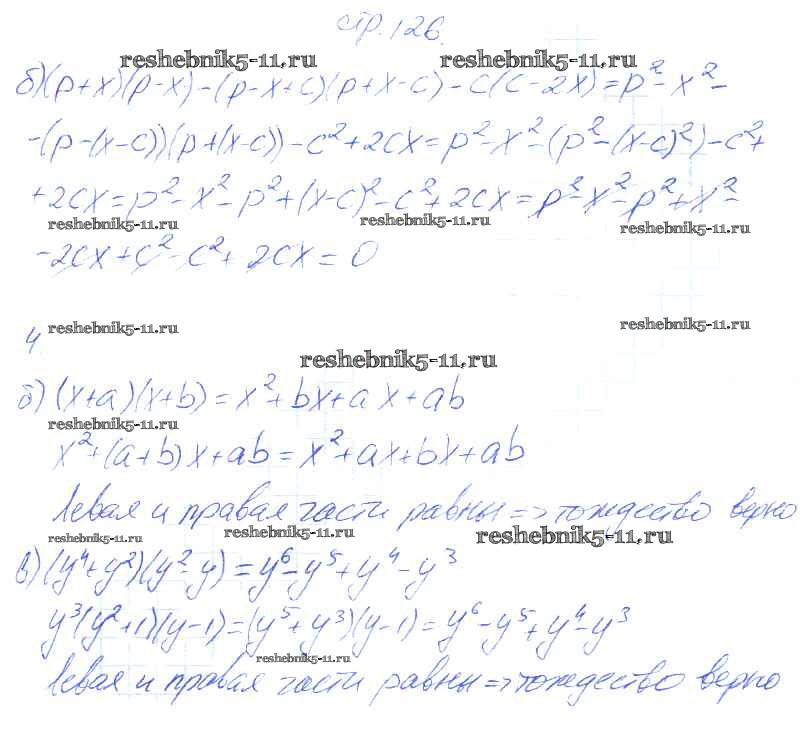 стр. 126.
reshebnik5-11.ru reshebnik5-11.ru
б) (p+x)(p-x)-(p-x+c)(p+x-c)-c(c-2x)=p²-x²-
-(p-(x-c))(p+(x-c))-c²+2cx=p²-x²-(p²-(x-c)²)-c²+
+2cx=p²-x²-p²+(x-c)²-c²+2cx=p²-x²-p²+x²-
reshebnik5-11.ru reshebnik5-11.ru reshebnik5-11.ru
-2cx+c²-c²+2cx=0
4. reshebnik5-11.ru reshebnik5-11.ru
reshebnik5-11.ru
б) (x+a)(x+b)=x²+bx+ax+ab
reshebnik5-11.ru
x²+(a+b)x+ab=x²+ax+bx+ab
Левая и правая части равны=>тождество верно
reshebnik5-11.ru reshebnik5-11.ru reshebnik5-11.ru
в) (y⁴+y²)(y²-y)=y⁶-y⁵+y⁴-y³
y³(y²+1)(y-1)=(y⁵+y³)(y-1)=y⁶-y⁵+y⁴-y³
reshebnik5-11.ru
Левая и правая части равны=>тождество верно